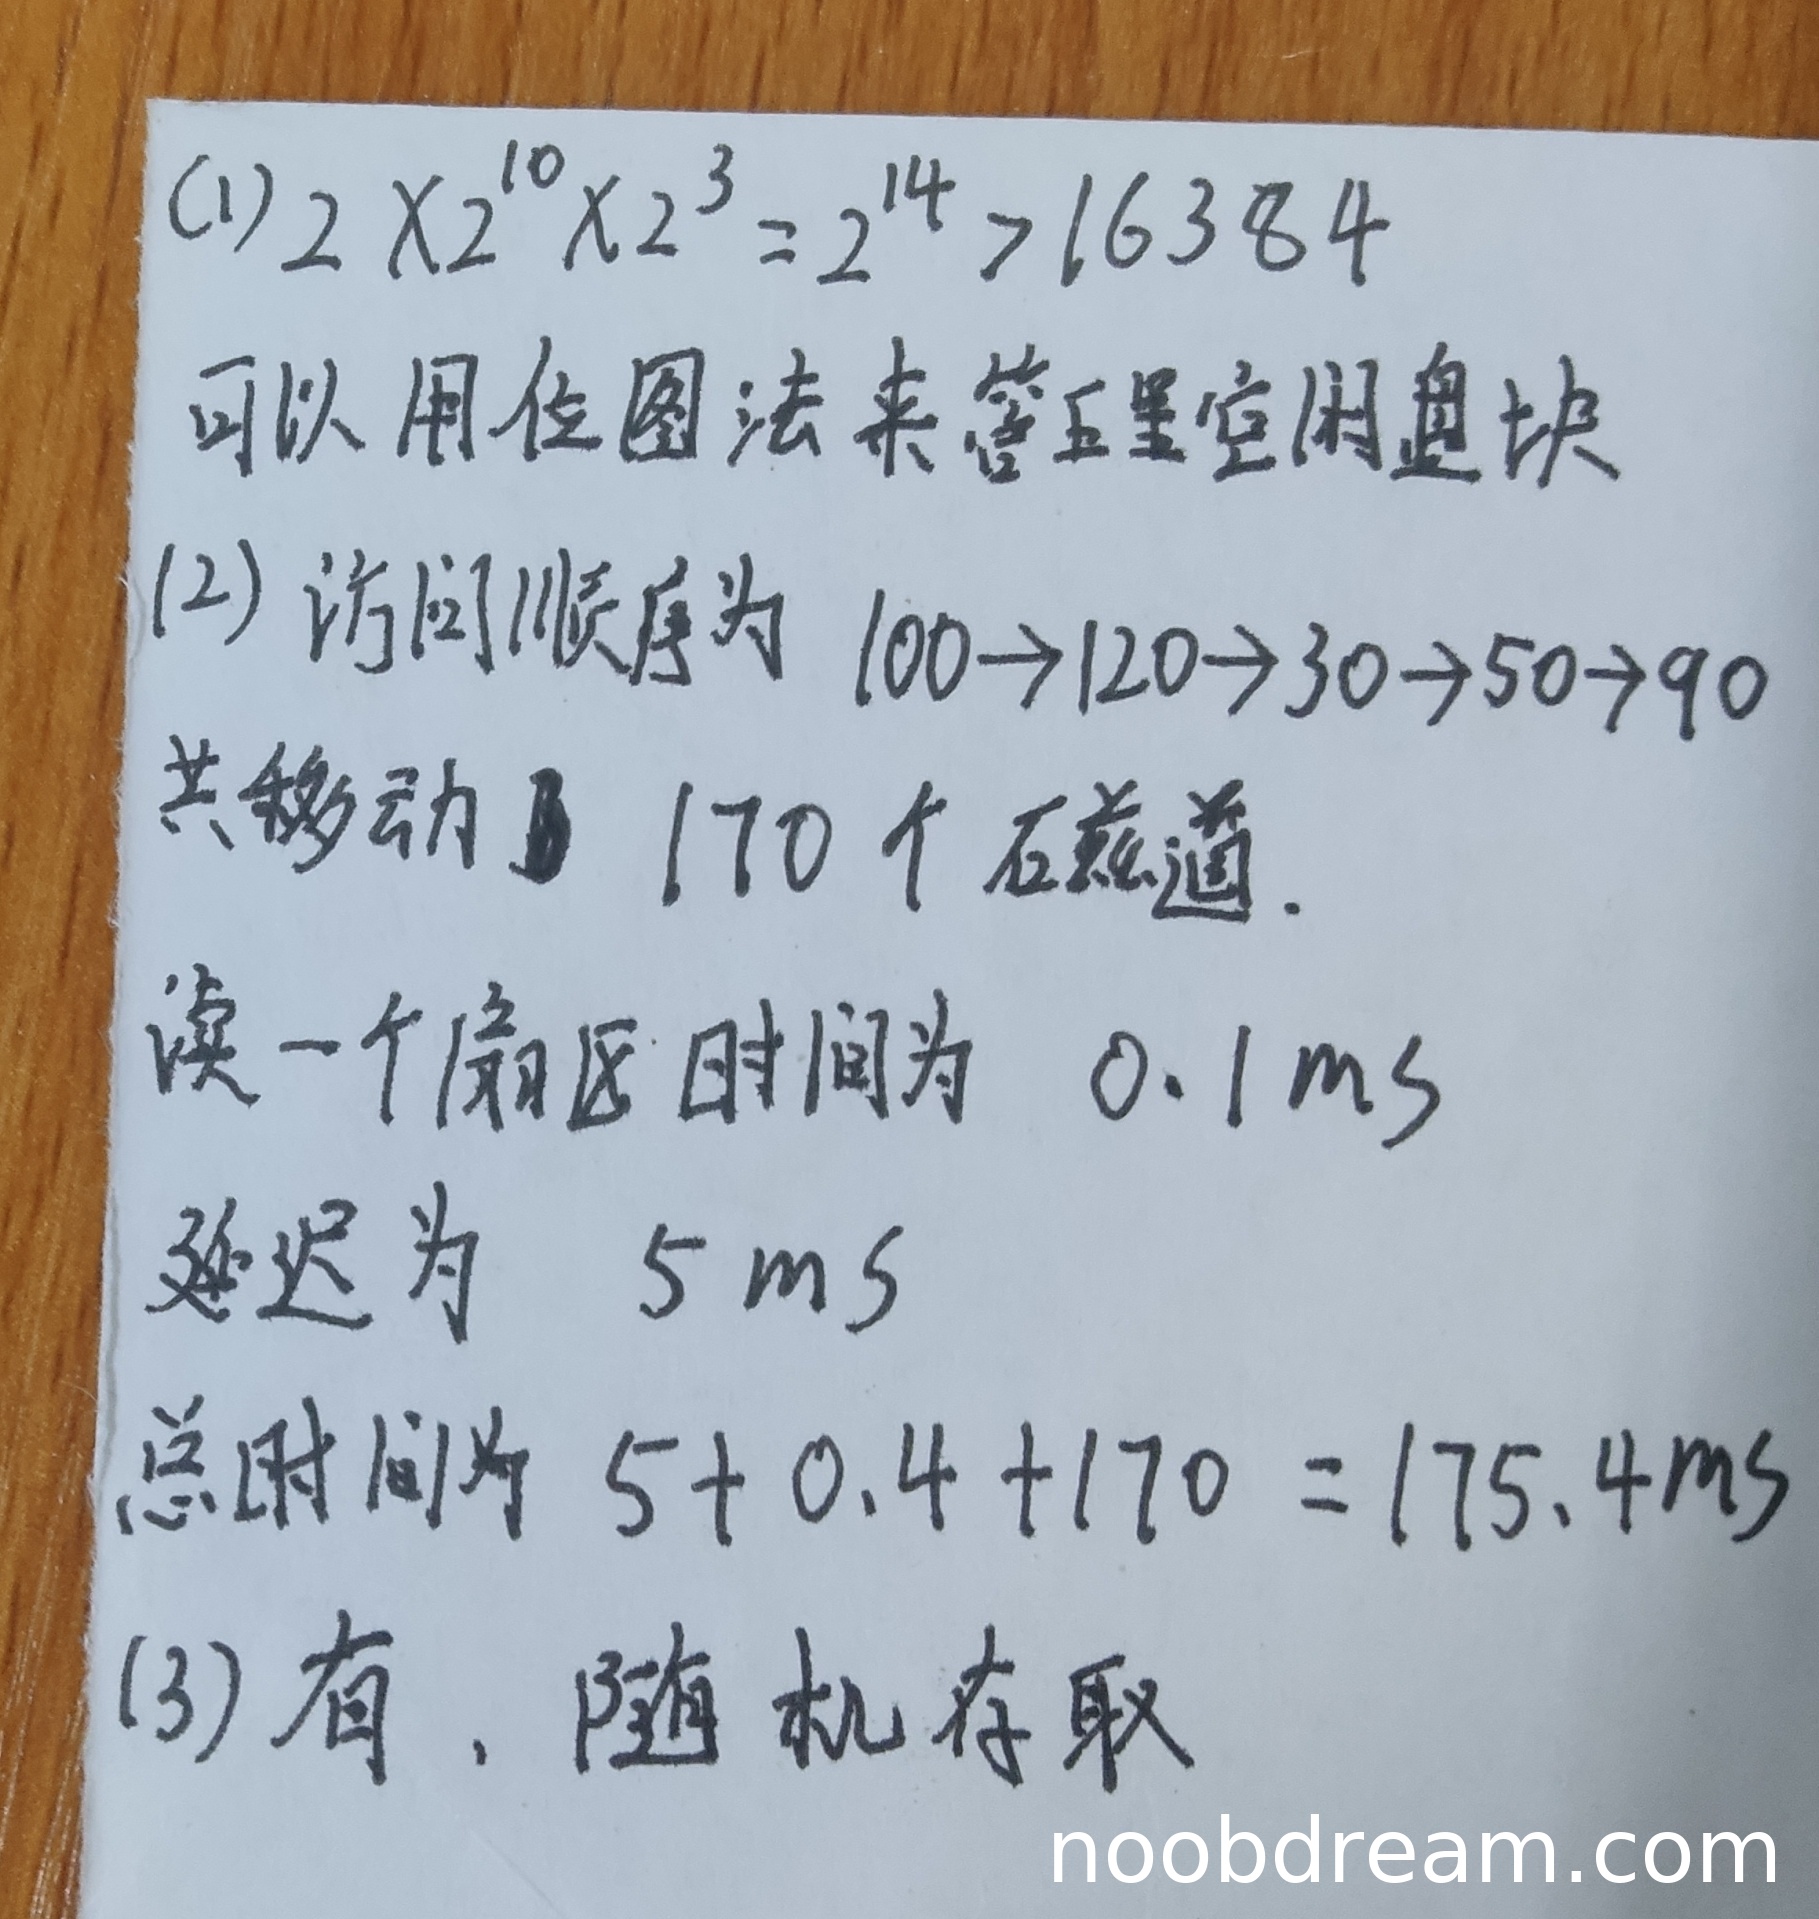 (1) 2×2¹⁰×2³=2¹⁴>16384
可以用位图法来管理空闲盘块
(2) 访问顺序为 100→120→30→50→90
共移动 170个磁道.
读一个扇区时间为 0.1ms
延迟为 5ms
总时间为 5+0.4+170=175.4ms
(3) 有、随机存取
noobdream.com